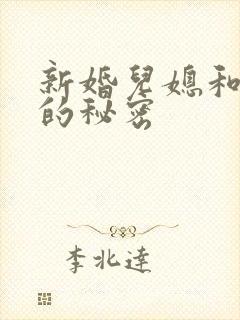 新婚兒媳和
的秘密
李北達